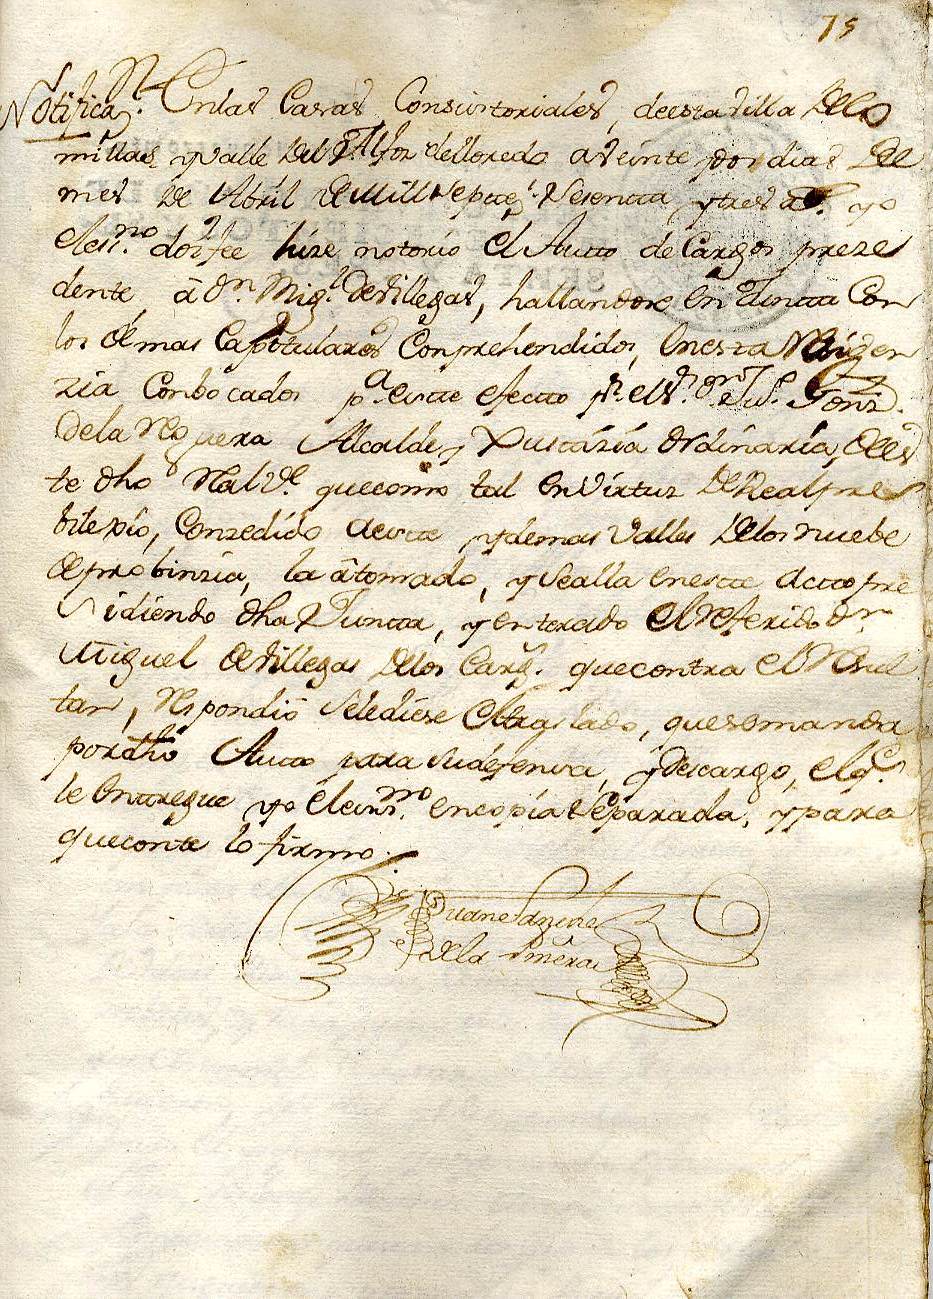 75
Notificaⁿ. En las Casas Consistoriales, de esta villa de Co
millas y Valle del Alfoz de lloredo a Veinte y dos dias del
mes de Abril de Mill setteˢ. Sesentta y tres aˢ. yo
el esⁿᵒ. doi fee hize notorio el Autto de Cargos preze
dente â dⁿ. Migˡ. de Villegas, hallandose en Juntta Con
los demas Capitulares Conprehendidos, en esta
zia Conbocados pᵃ. este efecto pʳ. el sʳ. dⁿ. Juⁿ. Gonz.
de la Reguera Alcalde y Justizia ordinaria, de es
te dho Rˡ Valˡᵉ. que como tal en Virtuz de Real pre
bilexio, Conzedido a este y demas Valles de los nuebe
de probinzia, la â tomado, y se alla en este acto pre
sidiendo dha Juntta, y enterado el referido dⁿ.
Miguel de Villegas de los Cargˢ. que contra el Resul
tan, Respondiô se le diese el traslado, que se manda
por dho Autto para su defensa, y descargo, el q̃.
le entregue yo el esⁿᵒ. en copia separada, y para
que conste lo firmo.
de la